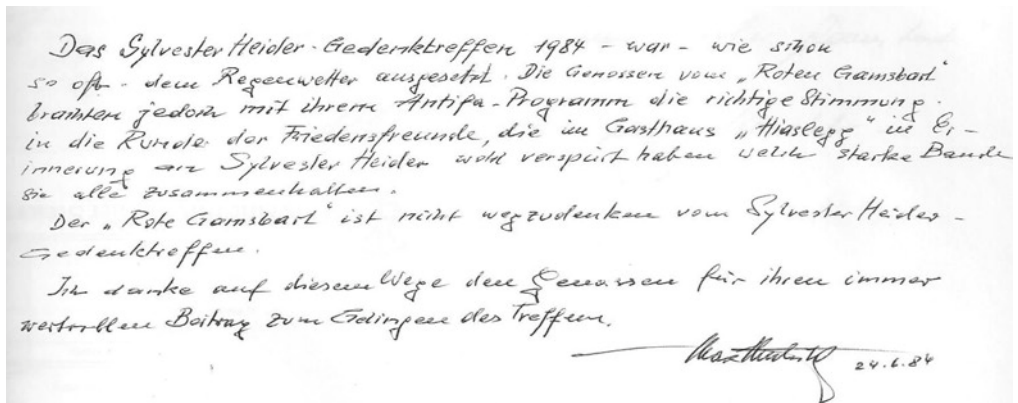 Das Sylvester Heider-Gedenktreffen 1984 - war - wie schon
so oft - dem Regenwetter ausgesetzt. Die Genossen vom „Roten Gamsbart"
brachten jedoch mit ihrem Antifa-Programm die richtige Stimmung
in die Runde der Friedensfreunde, die im Gasthaus „Hiaslegg" in Er-
innerung an Sylvester Heider wohl verspürt haben welch starke Bande
sie alle zusammenhalten.
Der „Rote Gamsbart" ist nicht wegzudenken vom Sylvester Heider-
Gedenktreffen.
Ich danke auf diesem Wege den Genossen für ihren immer
wertvollen Beitrag zum Gelingen des Treffens.
24.6.84